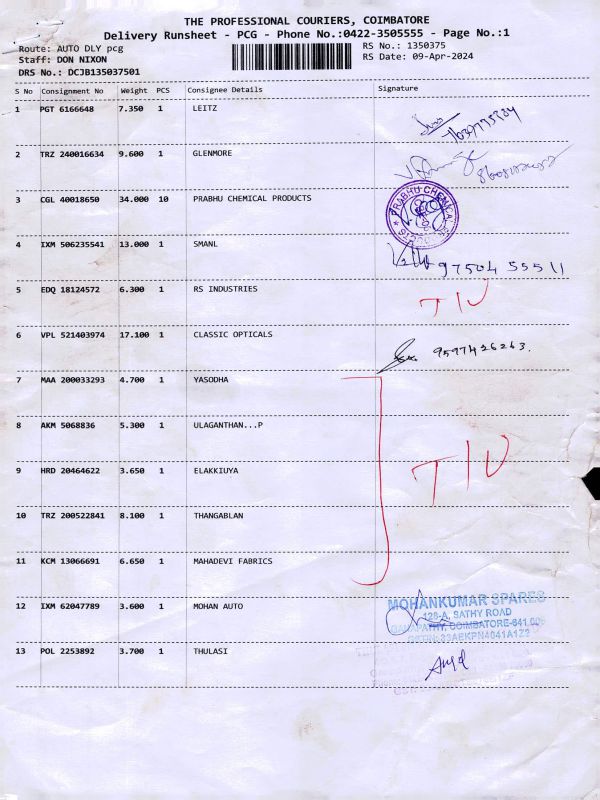 THE PROFESSIONAL COURIERS, COIMBATORE
Delivery Runsheet - PCG - Phone No.:0422-3505555 - Page No.:1
Route: AUTO DLY pcg
RS No.: 1350375
Staff: DON NIXON
RS Date: 09-Apr-2024
DRS No.: DCJB135037501
S No Consignment No Weight PCS Consignee Details Signature
1 PGT 6166648 7.350 1 LEITZ
2 TRZ 240016634 9.600 1 GLENMORE
3 CGL 40018650 34.000 10 PRABHU CHEMICAL PRODUCTS
PRABHU CHEMICAL PRODUCTS
4 IXM 506235541 13.000 1 SMANL
97504 55511
5 EDQ 18124572 6.300 1 RS INDUSTRIES
T/U
6 VPL 521403974 17.100 1 CLASSIC OPTICALS
9597426263.
7 MAA 200033293 4.700 1 YASODHA
8 AKM 5068836 5.300 1 ULAGANTHAN...P
9 HRD 20464622 3.650 1 ELAKKIUYA
T/U
10 TRZ 200522841 8.100 1 THANGABLAN
11 KCM 13066691 6.650 1 MAHADEVI FABRICS
12 IXM 62047789 3.600 1 MOHAN AUTO
MOHANKUMAR SPARES
128-A, SATHY ROAD
GANAPATHY, COIMBATORE-641 006
13 POL 2253892 3.700 1 THULASI